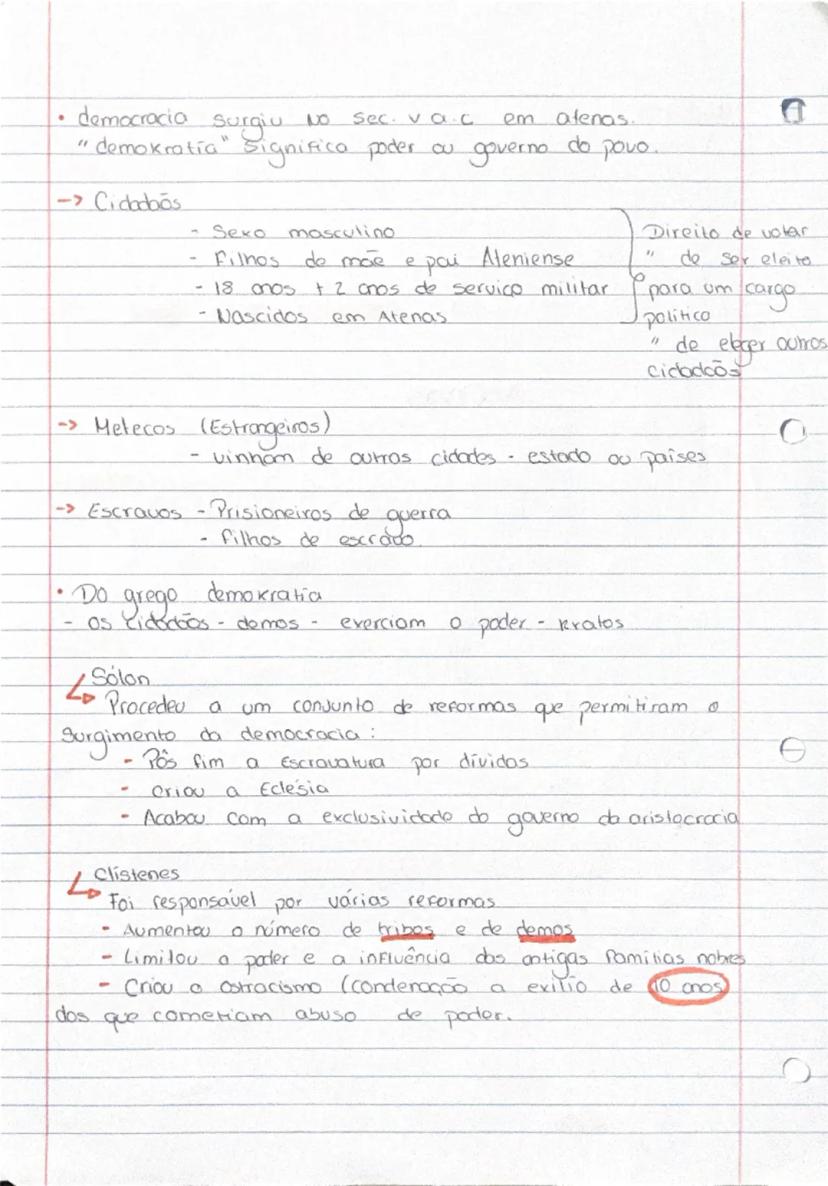 • democracia surgiu no sec. v a.c em atenas.
"demokratía" significa poder ou governo do povo.
-> Cidadãos
- Sexo masculino
- Filhos de mãe e pai Ateniense
- 18 anos + 2 anos de serviço militar
- Nascidos em Atenas
Direito de votar
" de ser eleito
para um cargo
político
" de eleger outros
cidadãos
-> Metecos (Estrangeiros)
- vinham de outras cidades - estado ou países
-> Escravos - Prisioneiros de guerra
- filhos de escravo
• Do grego demokratia
- os cidadãos - demos - exerciam o poder - kratos
Sólon
Procedeu a um conjunto de reformas que permitiram o
surgimento da democracia :
- Pôs fim a Escravatura por dívidas
- criou a Eclésia
- Acabou com a exclusividade do governo da aristocracia
Clístenes
Foi responsável por várias reformas
- Aumentou o número de tribos e de demos
- Limitou o poder e a influência das antigas famílias nobres
- Criou o ostracismo (condenação a exílio de 10 anos
dos que cometiam abuso de poder.